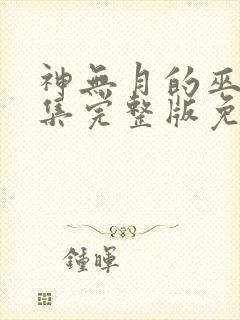 神無月的巫
集完整版免
鍾暉